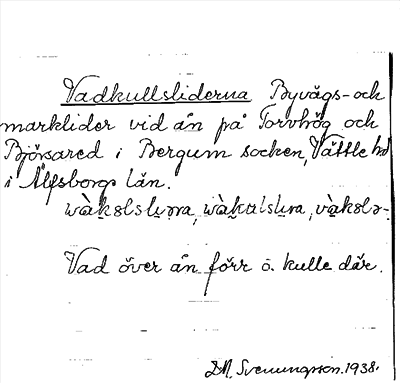 Vadkullsliderna Byvägs- och
marklider vid ån på Torvhög och
Björsared i Bergum socken, Vättle hd
i Älfsborgs län.
Vad över ån förr o. kulle där.
Svenungsson. 1938.